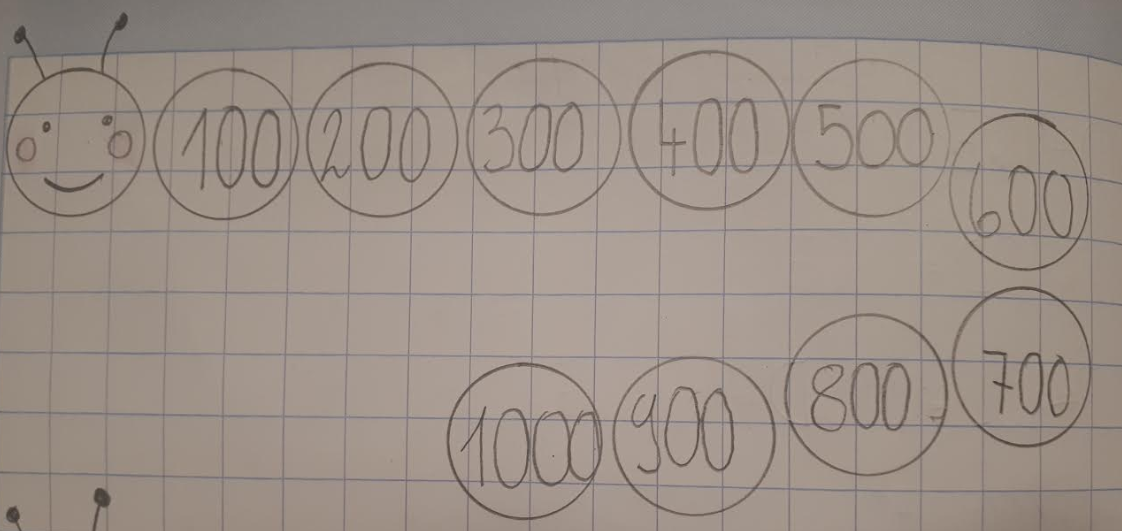 100 200 300 400 500 600
700
800
900
1000